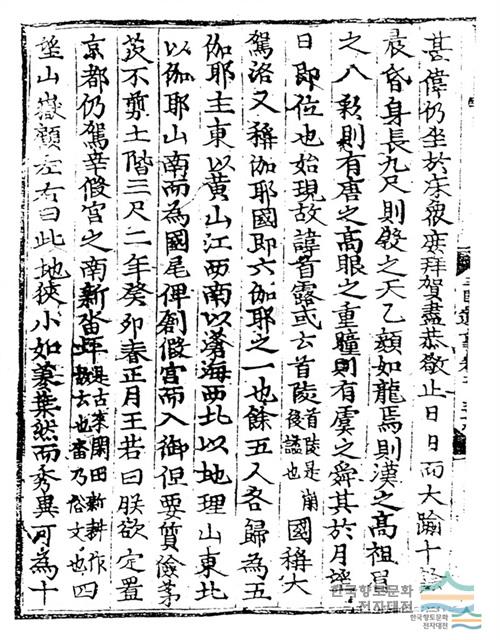 甚偉仍坐於床衆庶拜賀盡恭敬止日日而大踰十
晨昏身長九尺則殷之天乙顔如龍焉則漢之高祖眉
之八彩則有唐之高眼之重瞳則有虞之舜其於月望
日即位也始現故諱首露或云首陵首陵是崩後謚也國稱大
駕洛又稱伽耶國即六伽耶之一也餘五人各歸為五
伽耶主東以黃山江西南以滄海西北以地理山東北
以伽耶山南而為國尾俾創假宮而入御但要質儉茅
茨不剪土階三尺二年癸卯春正月王若曰朕欲定置
京都仍駕幸假宮之南新畓坪是古來閑田新耕作故云也畓乃俗文也四
望山嶽顧左右曰此地狹小如蓼葉然而秀異可為十
한국향토문화
전자대전
한국향토문화
전자대전